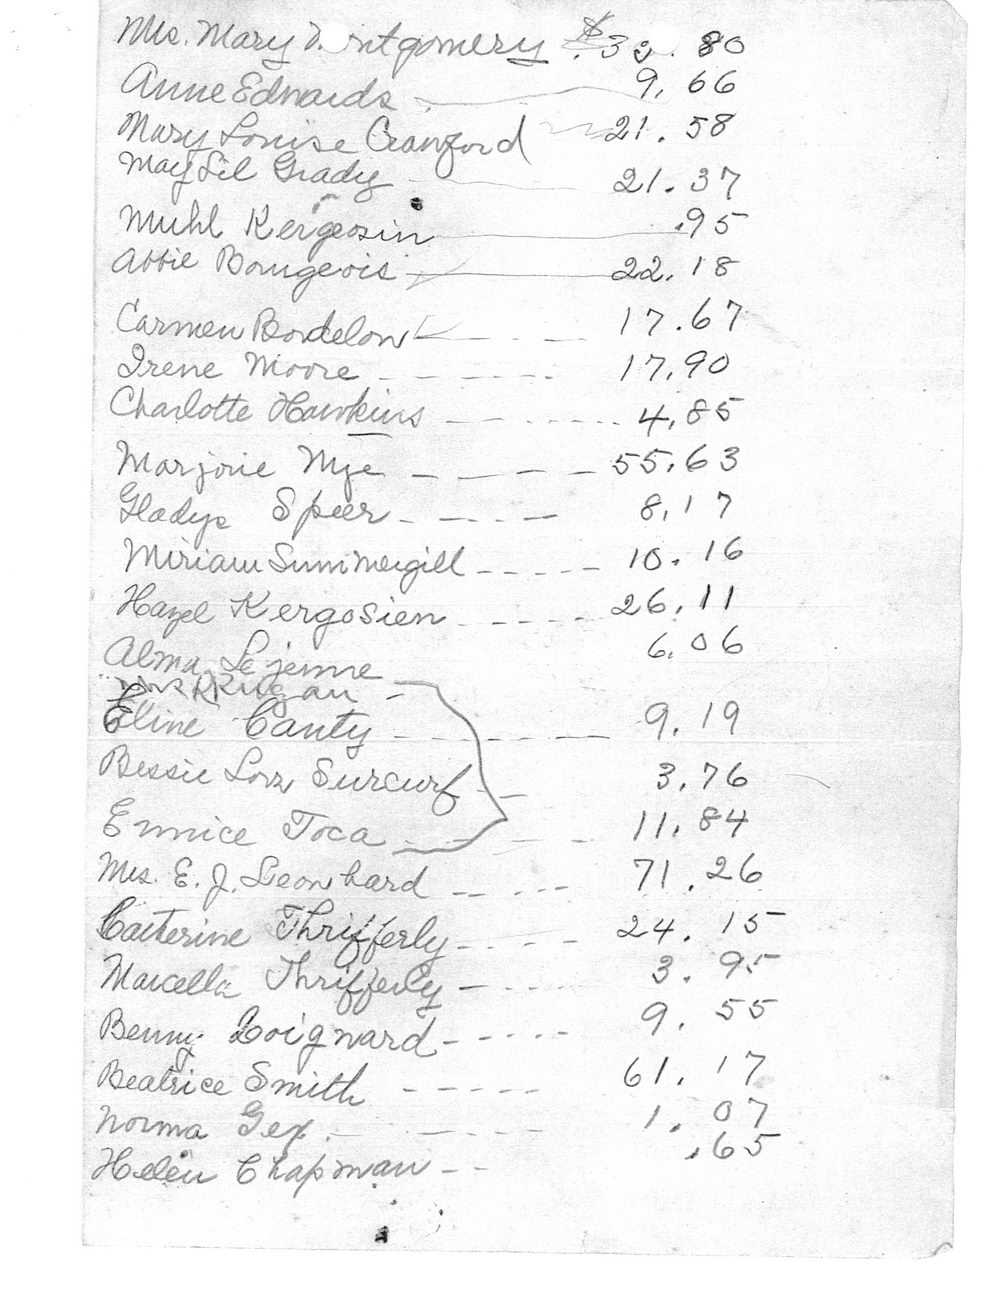 Mrs. Mary M ntgomery $32.80
Anne Edwards 9.66
Mary Louise Crawford 21.58
May Lil Grady 21.37
Muhl Kergosin .95
Abbie Bourgeois 22.18
Carmen Bordelon 17.67
Irene Moore 17.90
Charlotte Hawkins 4.85
Marjorie Nye 55.63
Gladys Speer 8.17
Miriam Summergill 10.16
Hazel Kergosien 26.11
Alma Lejeune 6.06
Eline Canty 9.19
Bessie Lou Surcurf 3.76
Eunice Toca 11.84
Mrs. E. J. Leonhard 71.26
Catterine Thrifferly 24.15
Marcella Thrifferly 3.95
Benny Loignard 9.55
Beatrice Smith 61.17
Norma Gex. 1.07
Helen Chapman .65